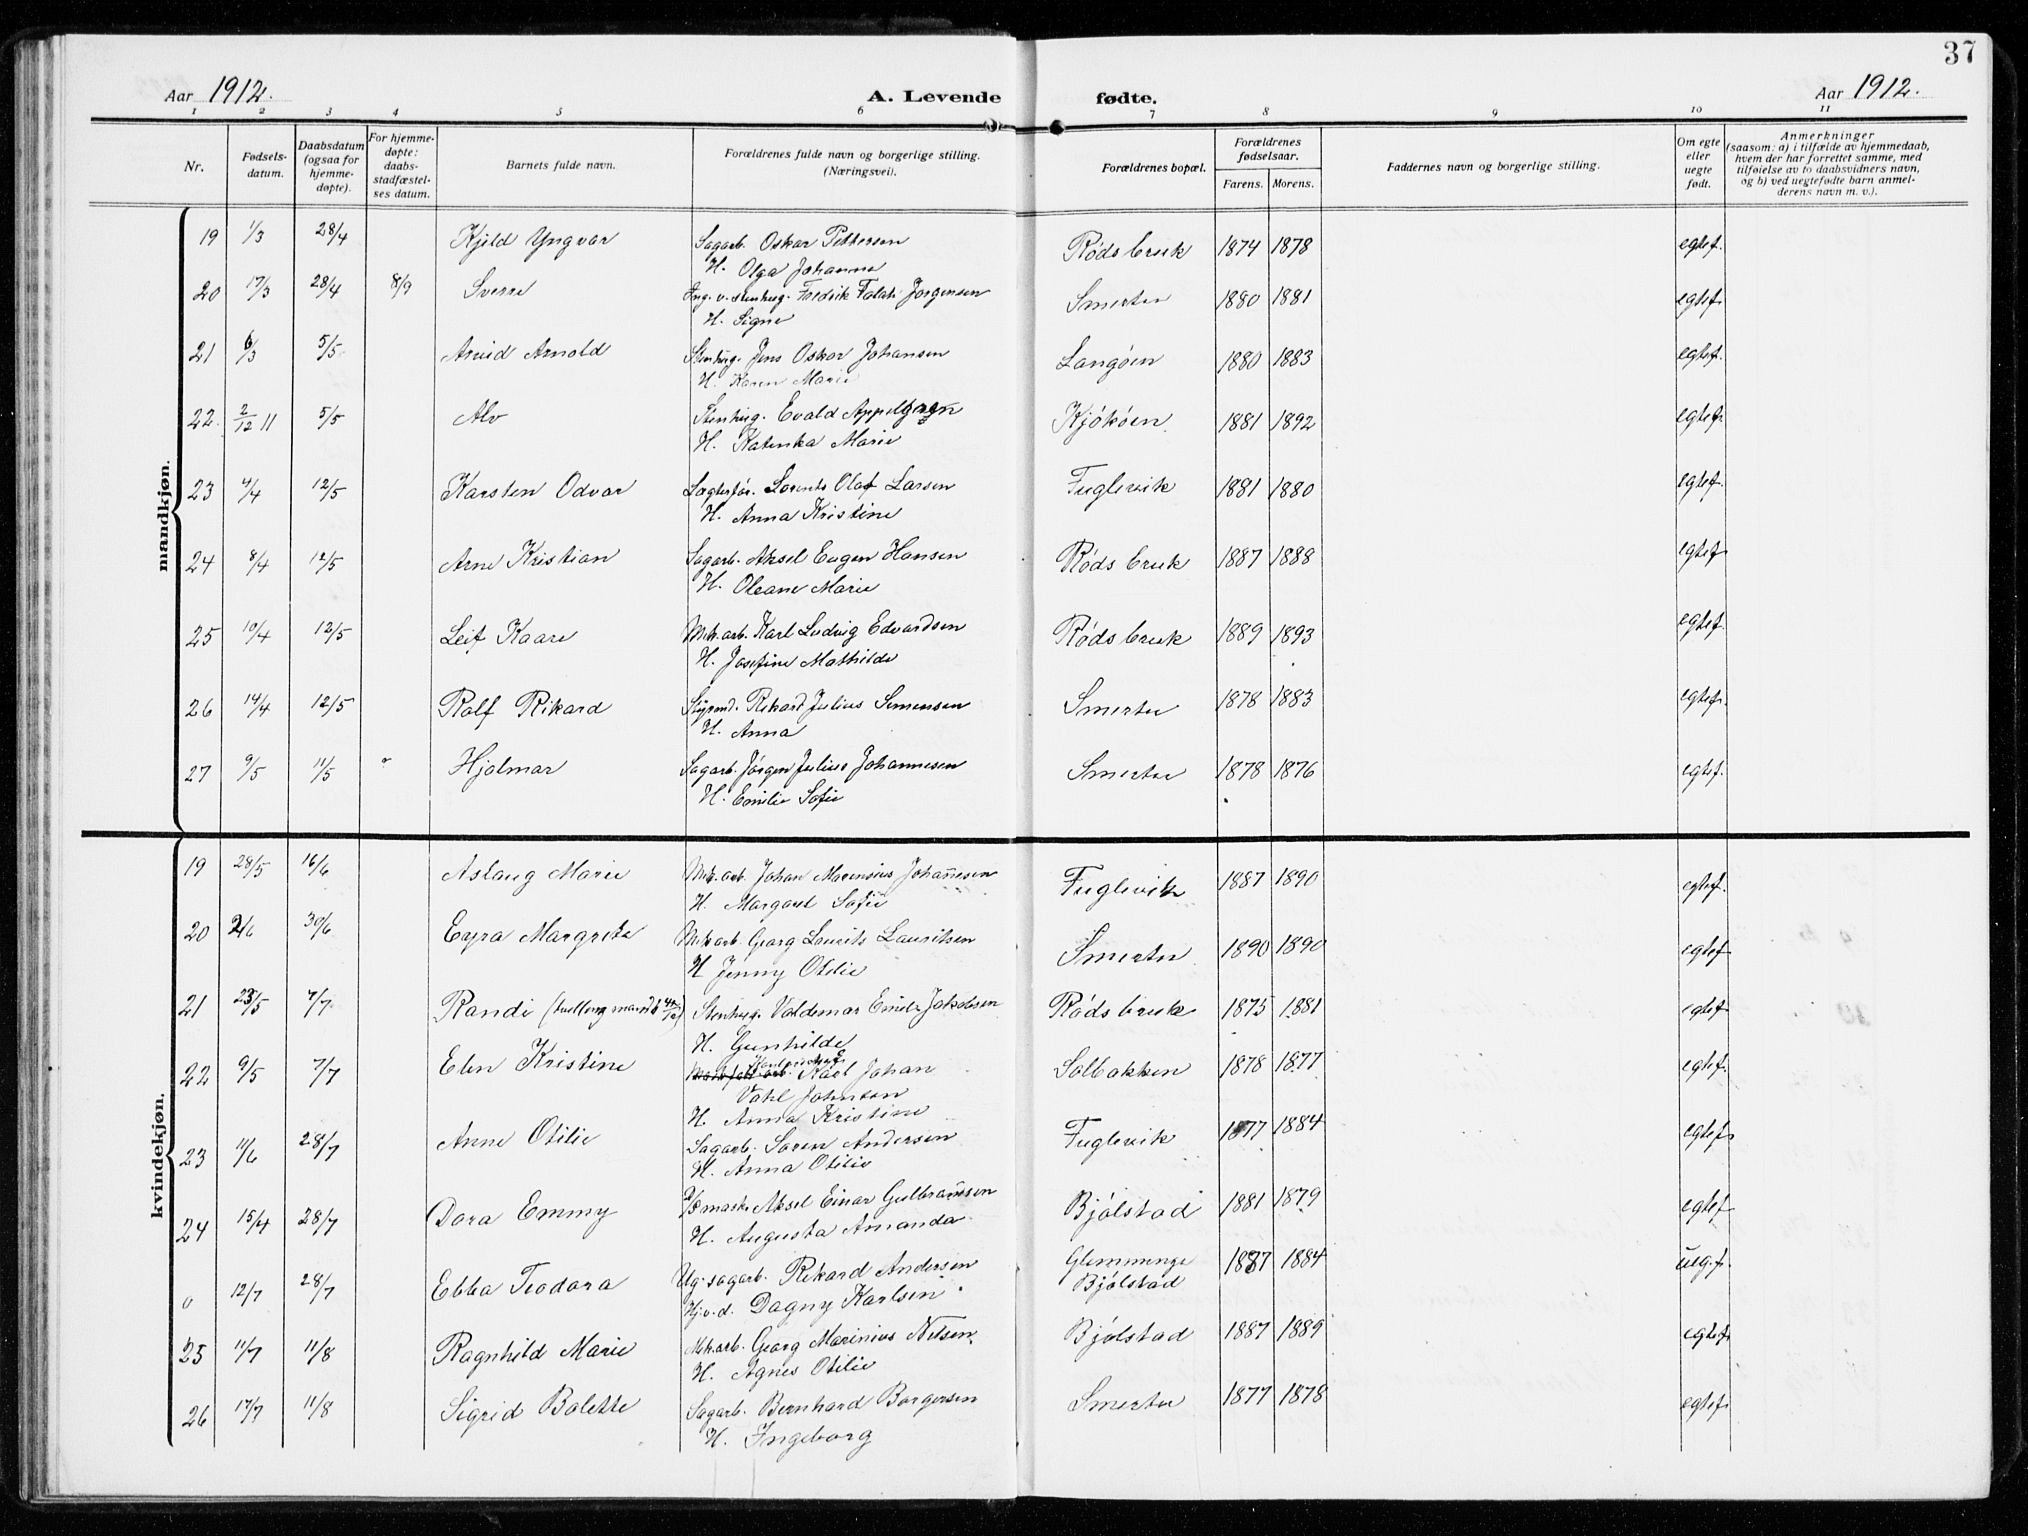 37
Aar 1912. A. Levende fødte. Aar 1912.
1 2 3 4 5 6 7 8 9 10 11
Nr. Fødsels-datum. Daabsdatum (ogsaa for hjemme-døpte). For hjemme-døpte: daabs-stadfæstel-ses datum. Barnets fulde navn. Forældrenes fulde navn og borgerlige stilling. (Næringsvei). Forældrenes bopæl. Forældrenes fødselsaar. Farens. Morens. Faddernes navn og borgerlige stilling. Om egte eller uegte født. Anmerkninger (saasom: a) i tilfælde av hjemmedaab, hvem der har forrettet samme, med tilføielse av to daabsvidners navn, og b) ved uegtefødte barn anmel-derens navn m. v.).
mandkjøn.
19 1/3 28/4 Kjeld Yngvar Sagarb. Oskar Pettersen Røds bruk 1874 1878 egtef.
H. Olga Johanne
20 17/3 28/4 8/9 Sverre Ing. v. stenhug. Fredrik Jørgensen Smertu 1880 1881 egtef.
H. Signe
21 6/3 5/5 Arvid Arnold Stenhug. Jens Oskar Johansen Langøen 1880 1883 egtef.
H. Karen Marie
22. 2/12 11 5/5 Alv Stenhug. Evald Appelgren Kjøkøen 1881 1892 egtef.
H. Katinka Marie
23 4/4 12/5 Karsten Odvar Lægterfør. Lorents Olaf Larsen Fuglevik 1881 1880 egtef.
H. Anna Kristine
24 8/4 12/5 Arne Kristian Sagarb. Aksel Eugen Hansen Røds bruk 1887 1888 egtef.
H. Oleane Marie
25 10/4 12/5 Leif Kaare Mek.arb. Karl Ludvig Edvardsen Røds bruk 1889 1893 egtef.
H. Josefine Mathilde
26 14/4 12/5 Rolf Rikard Styrmd. Rikard Julius Simensen Smertu 1878 1883 egtef.
H. Anna
27 9/5 11/5 Hjalmar Sagarb. Jørgen Julius Johannesen Smertu 1878 1876 egtef.
H. Emilie Sofie
kvindekjøn.
19 28/5 16/6 Aslaug Marie Mek.arb. Johan Marensius Johannesen Fuglevik 1887 1890 egtef.
H. Margaret Sofie
20 2/6 30/6 Eyra Margrete Mek arb. Georg Laurits Lauritsen Smertu 1890 1890 egtef
H Jenny Otilie
21 23/5 7/7 Randi (tvilling Stenhug. Valdemar Emil Jakobsen Røds bruk 1875 1881 egtef
H. Gunhilde
22 9/5 7/7 Elen Kristine Karl Johan Solbakken 1878 1877 egtef.
Vahl Johnson
H. Anna Kristine
23 11/6 28/7 Anne Otilie Sagarb. Søren Andersen Fuglevik 1877 1884 egtef.
H. Anna Otilie
24 15/4 28/7 Dora Emmy Aksel Einar Gulbransen Bjølstad 1881 1879 egtef
H. Augusta Amanda.
0 12/7 28/7 Ebba Teodora Ug. sagarb. Rikard Andersen Glemminge 1887 1884 ueg.f.
Hj.v.d. Dagny Karlsen Bjølstad
25 11/7 11/8 Ragnhild Marie Mek.arb. Georg Marinius Nilsen Bjølstad 1887 1889 egtef.
H. Agnes Otilie
26 17/7 11/8 Sigrid Bolette Sagarb. Bernhard Borgersen Smertu 1877 1878 egtef.
H. Ingeborg